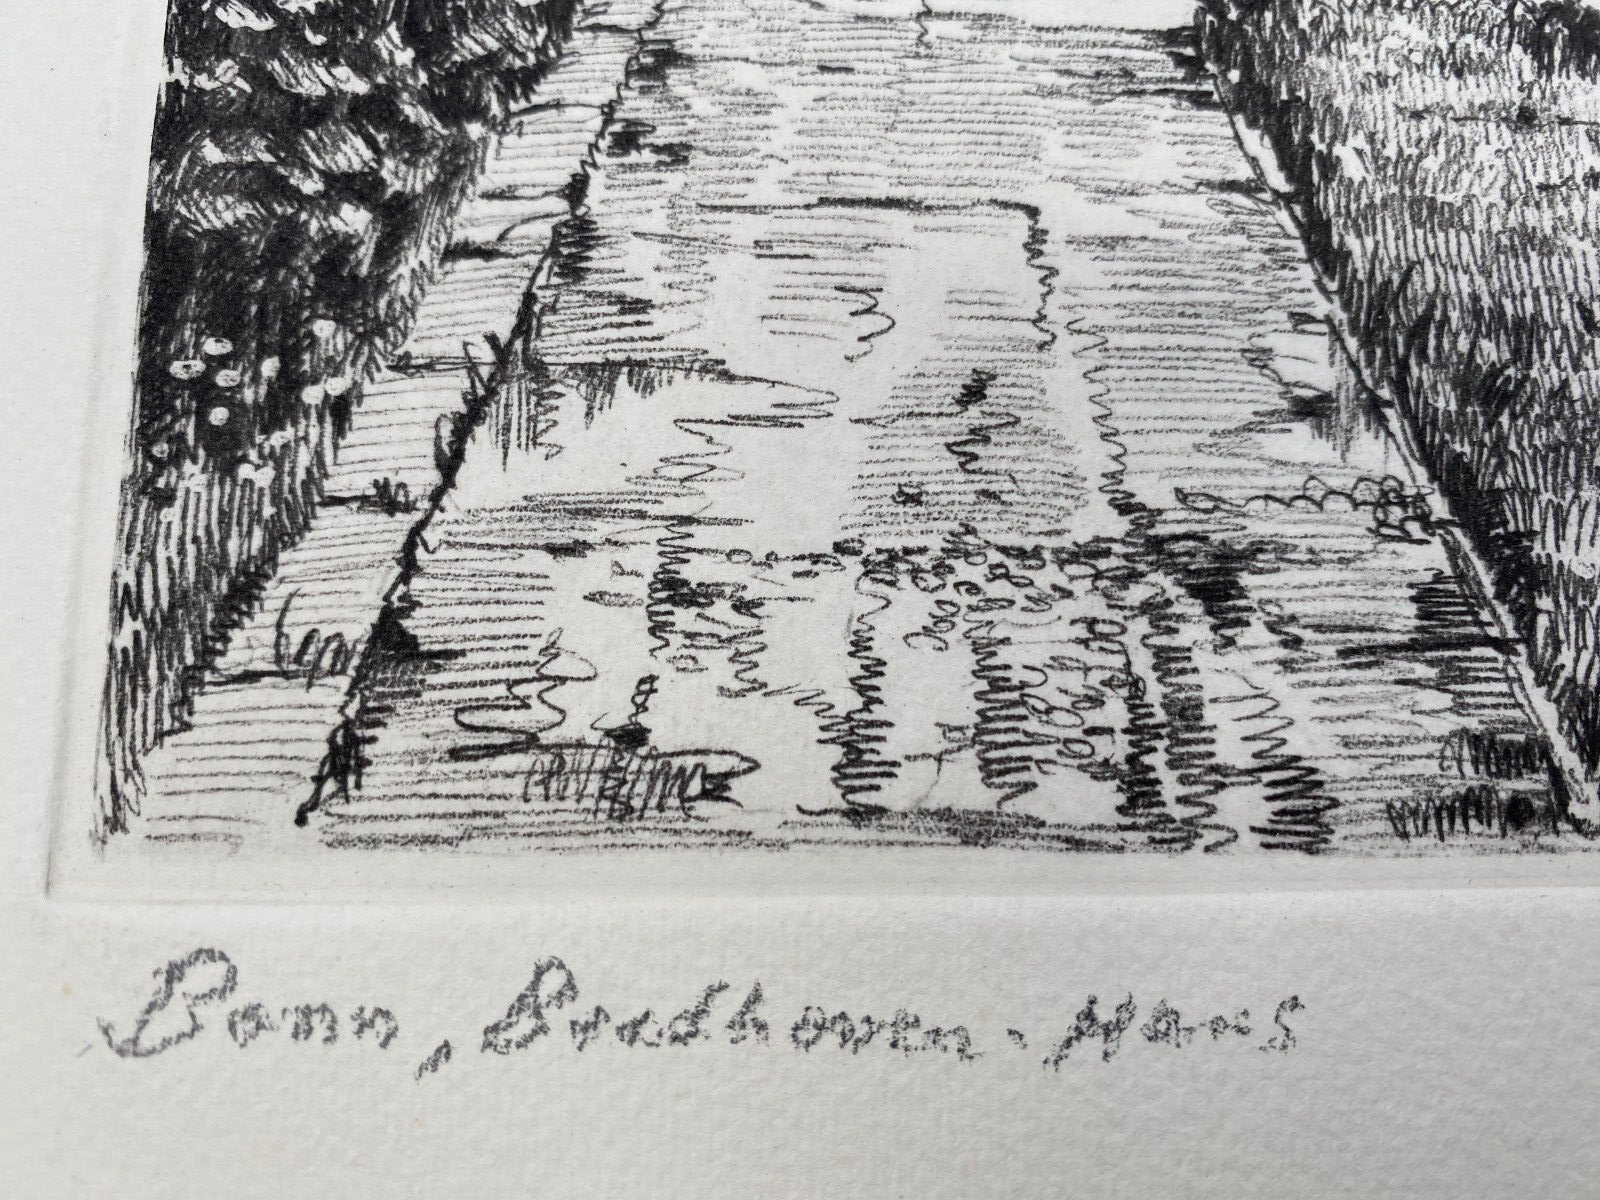 Bonn, Beethoven-Haus